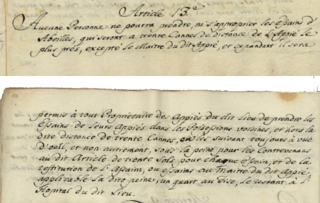 Article 13.e
Aucune Personne ne pourra prendre, ni s'approprier les Essains d'
Abeilles, qui seront a trente Cannes de distance de l'Apié le
plus près, excepté le Maitre du dit Apié, et cependant il sera
permis à tous Proprietaire de Apiés du dit Lieu de prendre les
Essains de leurs Apiés dans les Possessions voisines, et hors la
dite distance de trente Cannes, en les suivant toujours à vüe
d'oeil, et non autrement, sous la peine pour les Contrevenans
au dit Article de trente Sols pour chaque essain, et de la
restitution de l'Essain, ou Essains au Maitre du dit Apié,
applicable la dite peine un quart au Fisc, le restant à l'
Hôpital du dit Lieu.